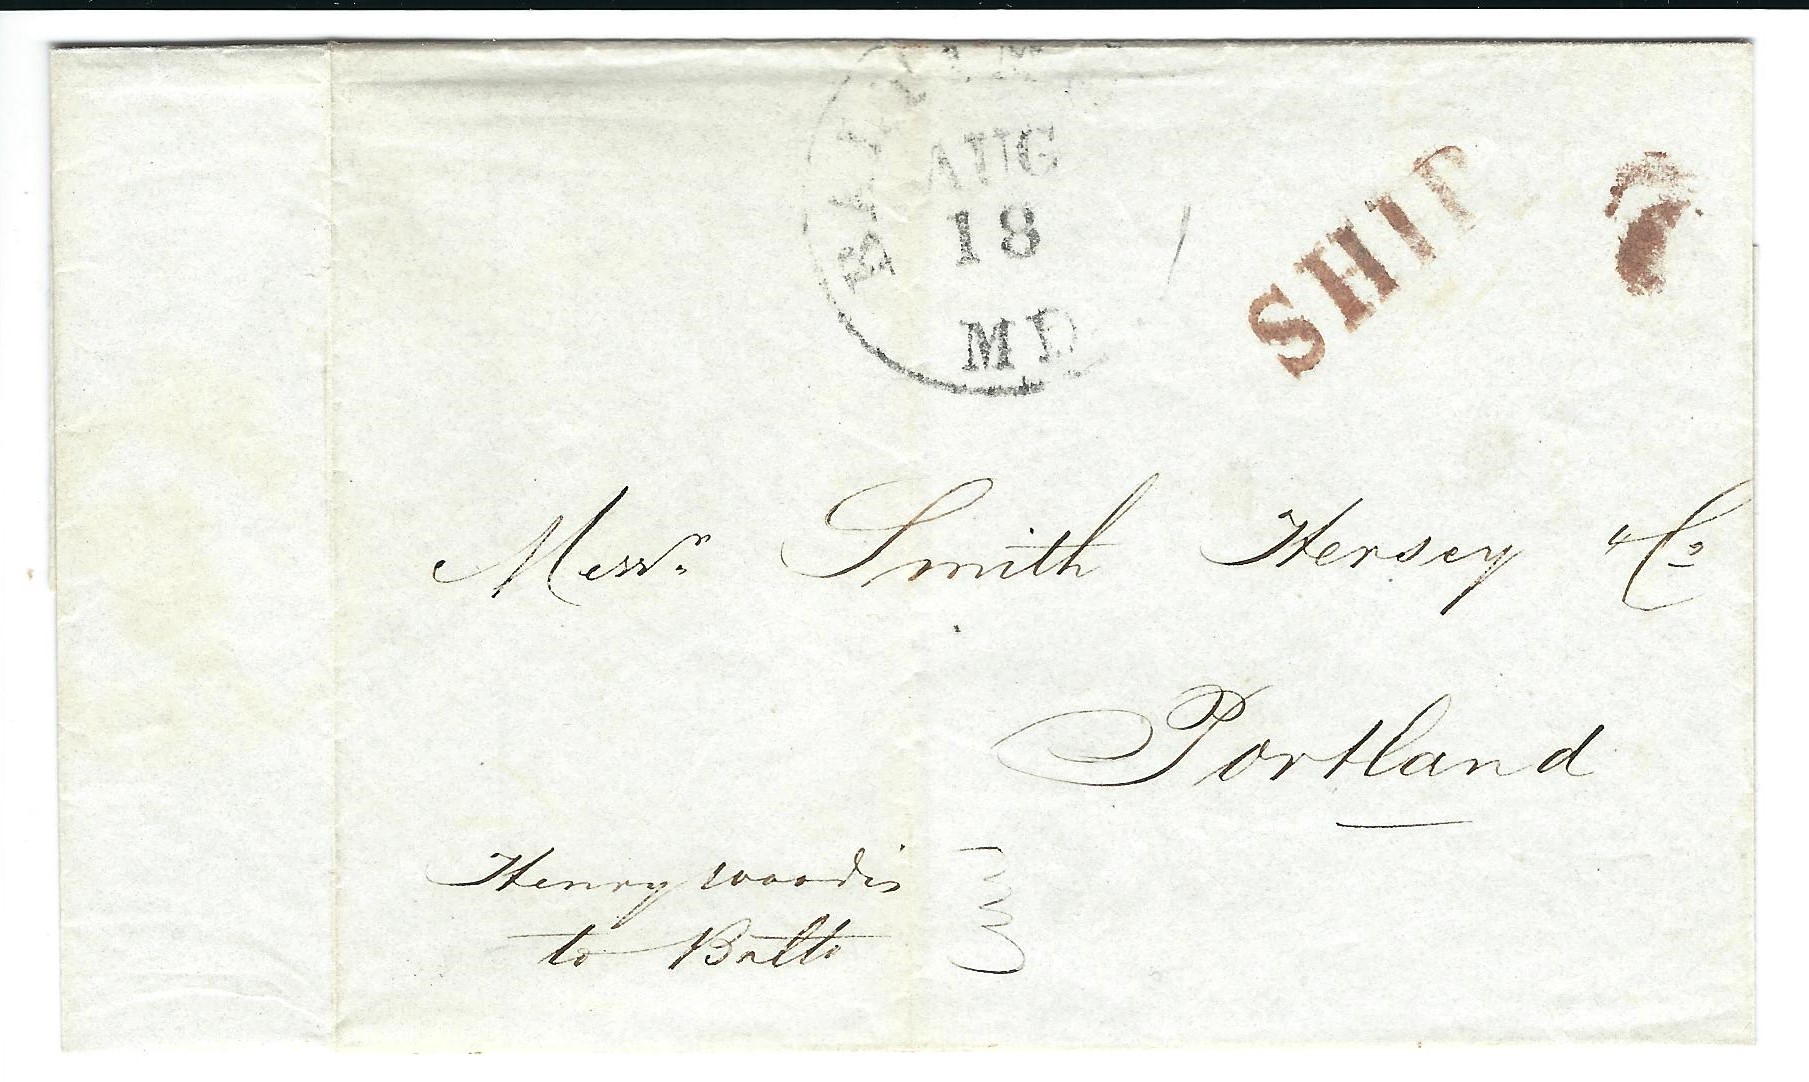 BALTIM
AUG
18
MD
SHIP
7
Messrs Smith Hersey & Co
Portland
Henry woodis
to Balto